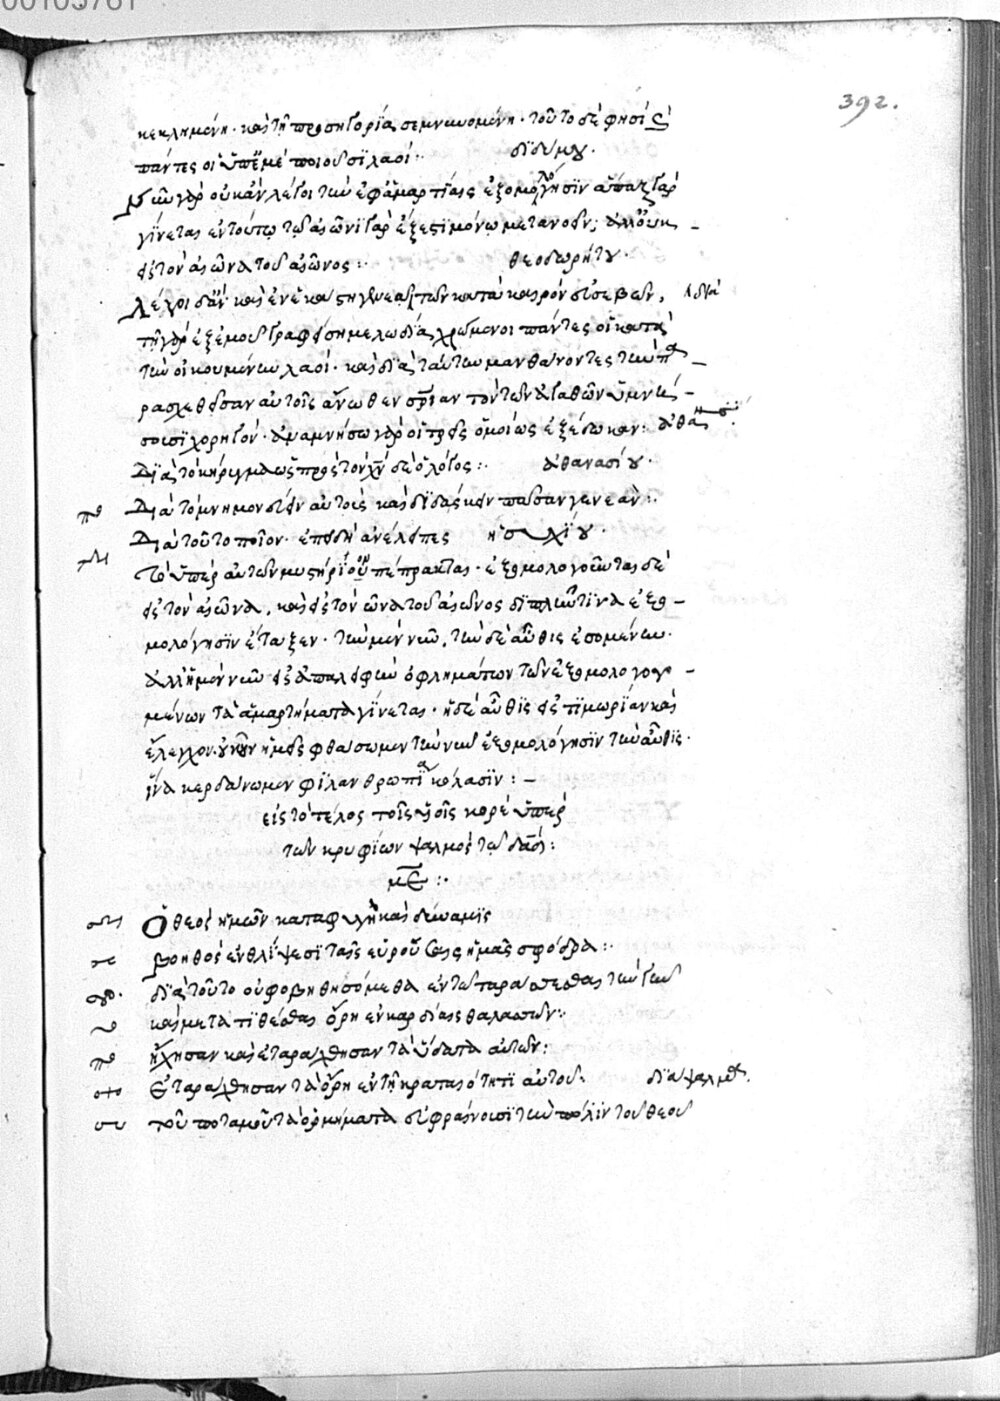 00103781
392.
κεκλημένη· καὶ τῆ προσηγορία σεμνυνομένη· τοῦτο δέ φησι
πάντες οἱ ποιοῦσι λαοί· διδύμου·
γὰρ οὐκ ἂν λέγοι τὴν ἐφ' ἁμαρτίαις ἐξομολόγησιν ἅπαξ γὰρ
γίνεται ἐν τούτω τῶ αἰῶνι γὰρ ἔξεστι μόνω μετανοεῖν; ἀλλ' οὐκ
εἰς τὸν αἰῶνα τοῦ αἰῶνος: θεοδωρήτου·
λέγοι δ' ἂν καὶ ἑνεκάστη γενεὰ τῶν κατὰ καιρὸν εὐσεβῶν,
τῆ γὰρ ἐξ ἐμοῦ γραφείση μελωδία χρώμενοι πάντες οἱ κατὰ
τὴν οἰκουμένην λαοί· καὶ διὰ ταύτην μανθάνοντες τὴν
ρασχεθεῖσαν αὐτοῖς ἄνωθεν σωτηρίαν τὸν τῶν ἀγαθῶν ὑμνή
σουσι χορηγόν· ἀναμνήσω γὰρ οἱ τρεῖς ὁμοίως ἐξέδωκαν:
διὰ τὸ κήρυγμα ὡς πρὸς τὸν χν δὲ ὁ λόγος: ἀθανασίου·
διὰ τὸ μνημονεύειν αὐτοὺς καὶ διδάσκειν πᾶσαν γενεάν:
διὰ τοῦτο ποῖον· ἐπειδὴ ἀνέλπες ἡσυχίου·
τὸ ὑπὲρ αὐτῶν μυστήριον πέπρακται· ἐξομολογοῦνται δὲ
εἰς τὸν αἰῶνα, καὶ εἰς τὸν αἰῶνα τοῦ αἰῶνος διπλῆν τινὰ ἐξο
μολόγησιν ἔταξεν· τὴν μὲν νῦν, τὴν δὲ αὖθις ἐσομένην·
ἀλλ' ἡ μὲν νῦν εἰς ἀπαλειφὴν ὀφλημάτων τῶν ἐξομολογου
μένων τὰ ἁμαρτήματα γίνεται· ἡ δὲ αὖθις εἰς τιμωρίαν καὶ
ἔλεγχον· ἡμεῖς φθάσωμεν τὴν νῦν ἐξομολόγησιν τὴν αὖθις·
ἵνα κερδάνωμεν φιλανθρωπία κόλασιν:
εἰς τὸ τέλος τοῖς υἱοῖς κορὲ ὑπὲρ
τῶν κρυφίων ψαλμὸς τῶ δαδ:
με:
Ὁ θεὸς ἡμῶν καταφυγὴ καὶ δύναμις
βοηθὸς ἐν θλίψεσι ταῖς εὑρούσαις ἡμᾶς σφόδρα:
διὰ τοῦτο οὐ φοβηθησόμεθα ἐν τῶ ταράσσεσθαι τὴν γῆν
καὶ μετατίθεσθαι ὄρη ἐν καρδίαις θαλασσῶν:
ἤχησαν καὶ ἐταράχθησαν τὰ ὕδατα αὐτῶν:
Ἐταράχθησαν τὰ ὄρη ἐν τῆ κραταιότητι αὐτοῦ· διάψαλμα.
τοῦ ποταμοῦ τὰ ὁρμήματα εὐφραίνουσι τὴν πόλιν τοῦ θεοῦ